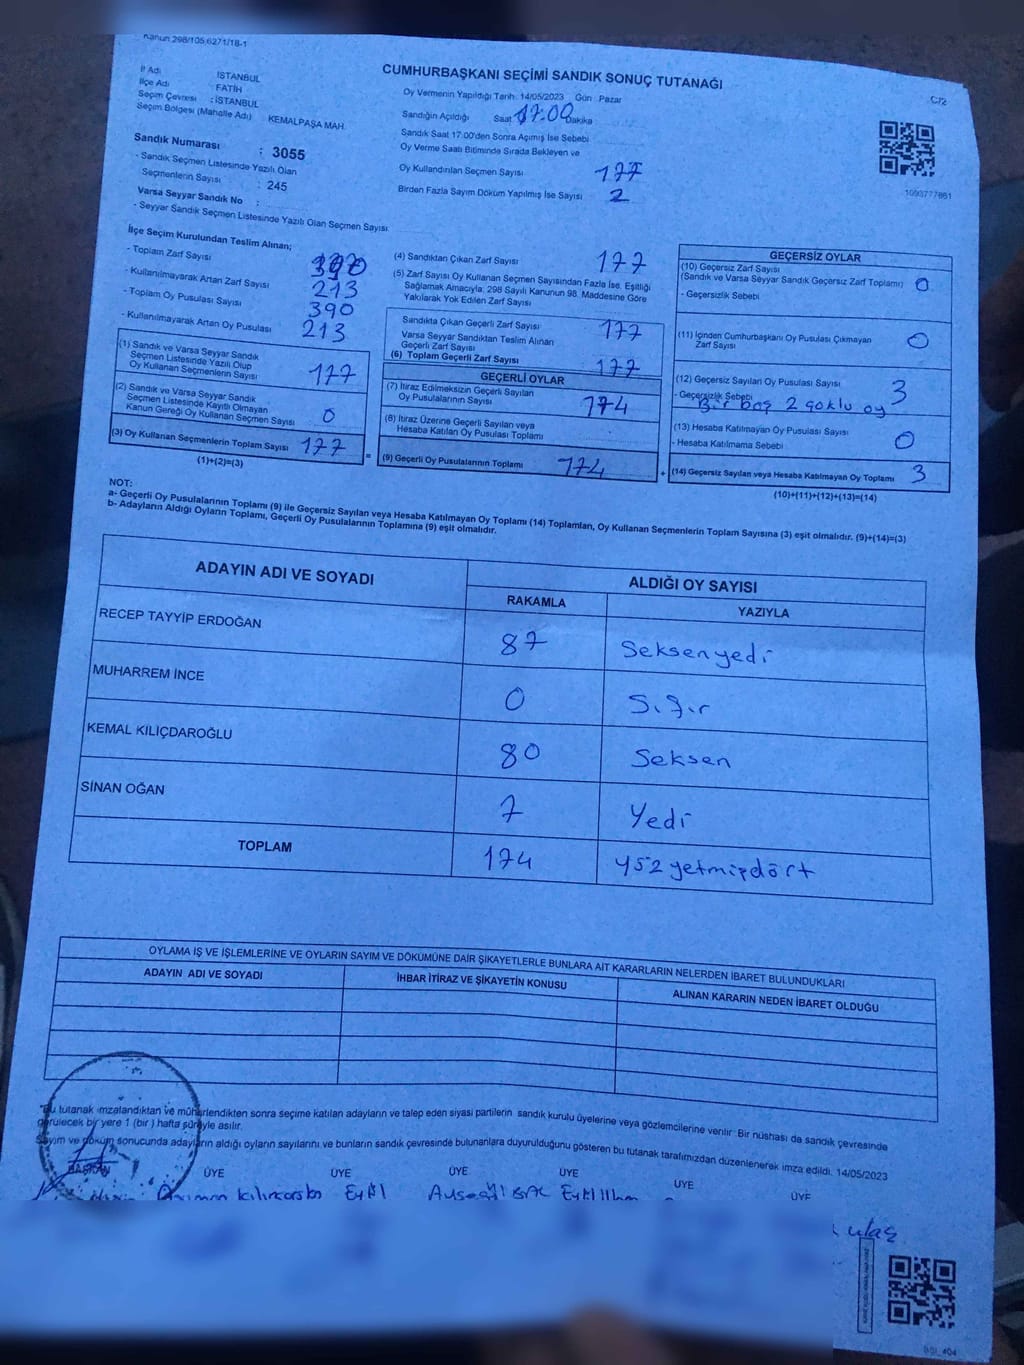 Kanun 298/105,6271/18-1
CUMHURBAŞKANI SEÇİMİ SANDIK SONUÇ TUTANAĞI
C/2
İl Adı : İSTANBUL
İlçe Adı : FATİH
Seçim Çevresi : İSTANBUL
Seçim Bölgesi (Mahalle Adı) KEMALPAŞA MAH.
Sandık Numarası : 3055
- Sandık Seçmen Listesinde Yazılı Olan
Seçmenlerin Sayısı : 245
Varsa Seyyar Sandık No :
- Seyyar Sandık Seçmen Listesinde Yazılı Olan Seçmen Sayısı:
Oy Vermenin Yapıldığı Tarih: 14/05/2023 Gün: Pazar
Sandığın Açıldığı Saat 17:00 Dakika
Sandık Saat 17:00'den Sonra Açılmış İse Sebebi
Oy Verme Saati Bitiminde Sırada Bekleyen ve
Oy Kullandırılan Seçmen Sayısı 177
Birden Fazla Sayım Döküm Yapılmış İse Sayısı 2
1093777861
İlçe Seçim Kurulundan Teslim Alınan;
- Toplam Zarf Sayısı 390
- Kullanılmayarak Artan Zarf Sayısı 213
- Toplam Oy Pusulası Sayısı 390
- Kullanılmayarak Artan Oy Pusulası 213
(1) Sandık ve Varsa Seyyar Sandık
Seçmen Listesinde Yazılı Olup
Oy Kullanan Seçmenlerin Sayısı 177
(2) Sandık ve Varsa Seyyar Sandık
Seçmen Listesinde Kayıtlı Olmayan
Kanun Gereği Oy Kullanan Seçmen Sayısı 0
(3) Oy Kullanan Seçmenlerin Toplam Sayısı 177 =
(1)+(2)=(3)
(4) Sandıktan Çıkan Zarf Sayısı 177
(5) Zarf Sayısı Oy Kullanan Seçmen Sayısından Fazla İse, Eşitliği
Sağlamak Amacıyla; 298 Sayılı Kanunun 98. Maddesine Göre
Yakılarak Yok Edilen Zarf Sayısı
Sandıkta Çıkan Geçerli Zarf Sayısı 177
Varsa Seyyar Sandıktan Teslim Alınan
Geçerli Zarf Sayısı
(6) Toplam Geçerli Zarf Sayısı 177
GEÇERLİ OYLAR
(7) İtiraz Edilmeksizin Geçerli Sayılan
Oy Pusulalarının Sayısı 174
(8) İtiraz Üzerine Geçerli Sayılan veya
Hesaba Katılan Oy Pusulası Toplamı
(9) Geçerli Oy Pusulalarının Toplamı 174 +
GEÇERSİZ OYLAR
(10) Geçersiz Zarf Sayısı
(Sandık ve Varsa Seyyar Sandık Geçersiz Zarf Toplamı) 0
- Geçersizlik Sebebi
(11) İçinden Cumhurbaşkanı Oy Pusulası Çıkmayan
Zarf Sayısı 0
(12) Geçersiz Sayılan Oy Pusulası Sayısı 3
- Geçersizlik Sebebi Bir boş 2 çoklu oy
(13) Hesaba Katılmayan Oy Pusulası Sayısı 0
- Hesaba Katılmama Sebebi
(14) Geçersiz Sayılan veya Hesaba Katılmayan Oy Toplamı 3
(10)+(11)+(12)+(13)=(14)
NOT:
a- Geçerli Oy Pusulalarının Toplamı (9) ile Geçersiz Sayılan veya Hesaba Katılmayan Oy Toplamı (14) Toplamları, Oy Kullanan Seçmenlerin Toplam Sayısına (3) eşit olmalıdır. (9)+(14)=(3)
b- Adayların Aldığı Oyların Toplamı, Geçerli Oy Pusulalarının Toplamına (9) eşit olmalıdır.
ADAYIN ADI VE SOYADI ALDIĞI OY SAYISI
RAKAMLA YAZIYLA
RECEP TAYYİP ERDOĞAN 87 Seksenyedi
MUHARREM İNCE 0 Sıfır
KEMAL KILIÇDAROĞLU 80 Seksen
SİNAN OĞAN 7 Yedi
TOPLAM 174 yüz yetmişdört
OYLAMA İŞ VE İŞLEMLERİNE VE OYLARIN SAYIM VE DÖKÜMÜNE DAİR ŞİKAYETLERLE BUNLARA AİT KARARLARIN NELERDEN İBARET BULUNDUKLARI
ADAYIN ADI VE SOYADI İHBAR İTİRAZ VE ŞİKAYETİN KONUSU ALINAN KARARIN NEDEN İBARET OLDUĞU
"Bu tutanak imzalandıktan ve mühürlendikten sonra seçime katılan adayların ve talep eden siyasi partilerin sandık kurulu üyelerine veya gözlemcilerine verilir. Bir nüshası da sandık çevresinde
görülecek bir yere 1 (bir) hafta süreyle asılır.
Sayım ve döküm sonucunda adayların aldığı oyların sayılarını ve bunların sandık çevresinde bulunanlara duyurulduğunu gösteren bu tutanak tarafımızdan düzenlenerek imza edildi. 14/05/2023
BAŞKAN ÜYE ÜYE ÜYE ÜYE ÜYE ÜYE
ulaş